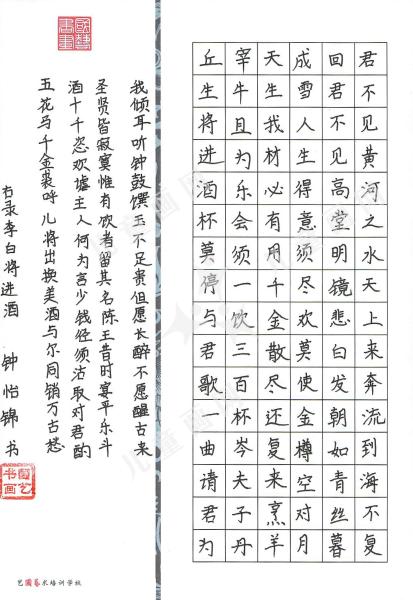 君不见黄河之水天上来奔流到海不复
回君不见高堂明镜悲白发朝如青丝暮
成雪人生得意须尽欢莫使金樽空对月
天生我材必有用千金散尽还复来烹羊
宰牛且为乐会须一饮三百杯岑夫子丹
丘生将进酒杯莫停与君歌一曲请君为
我倾耳听钟鼓馔玉不足贵但愿长醉不愿醒古来
圣贤皆寂寞惟有饮者留其名陈王昔时宴平乐斗
酒十千恣欢墟主人何为言少钱径须沽取对君酌
五花马千金裘呼儿将出换美酒与尔同销万古愁
右录李白将进酒 钟怡锦书
培训学校